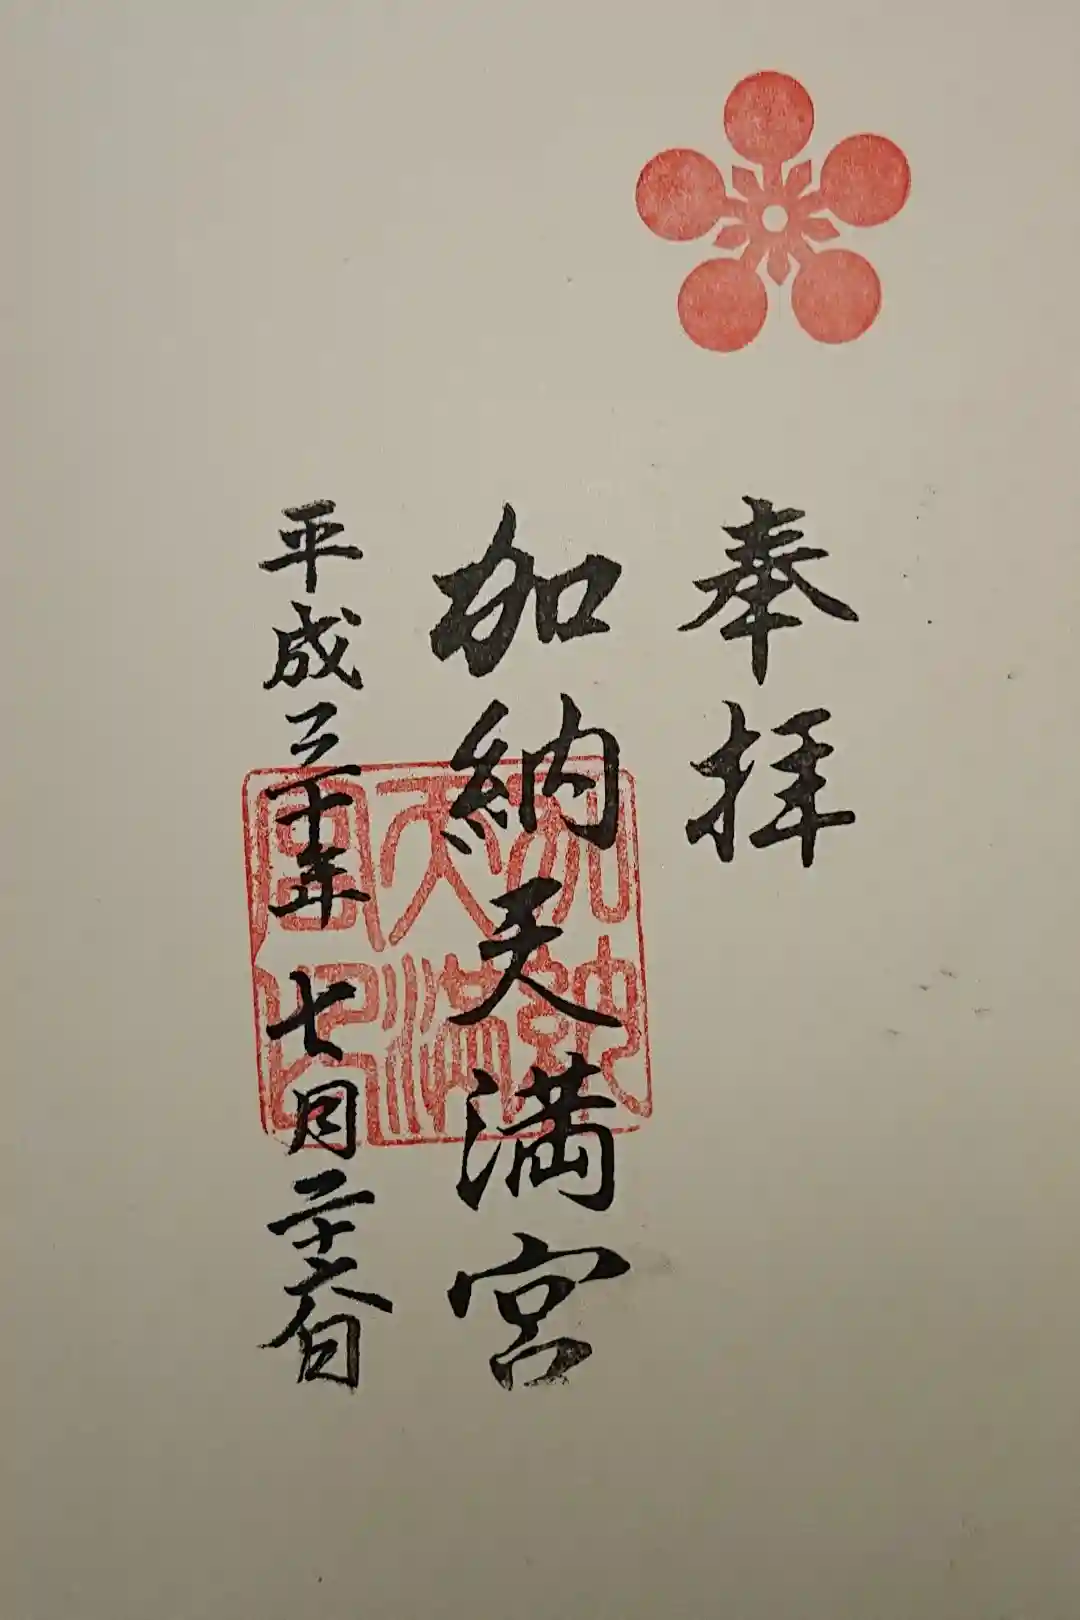 奉拝
加納天満宮
平成三十年 七月二十六日
加納天満宮印